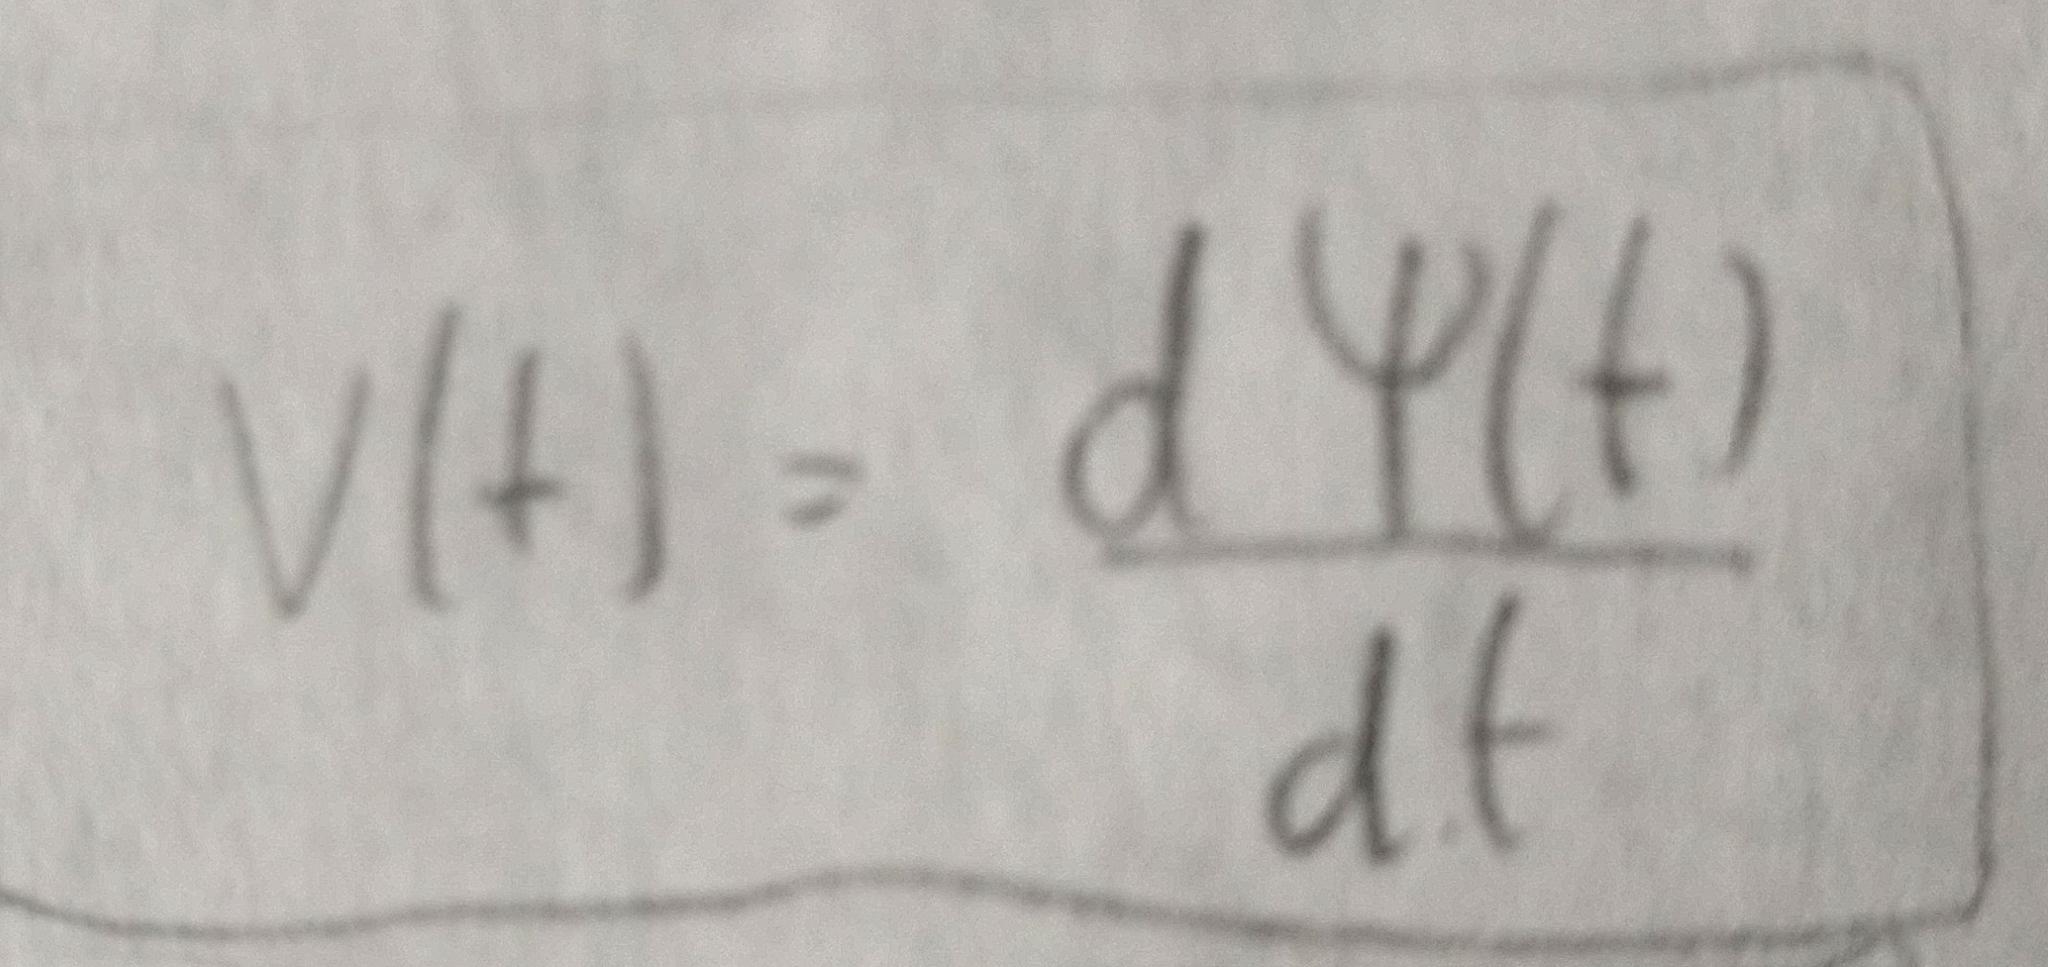 V(t) = dΨ(t)/dt